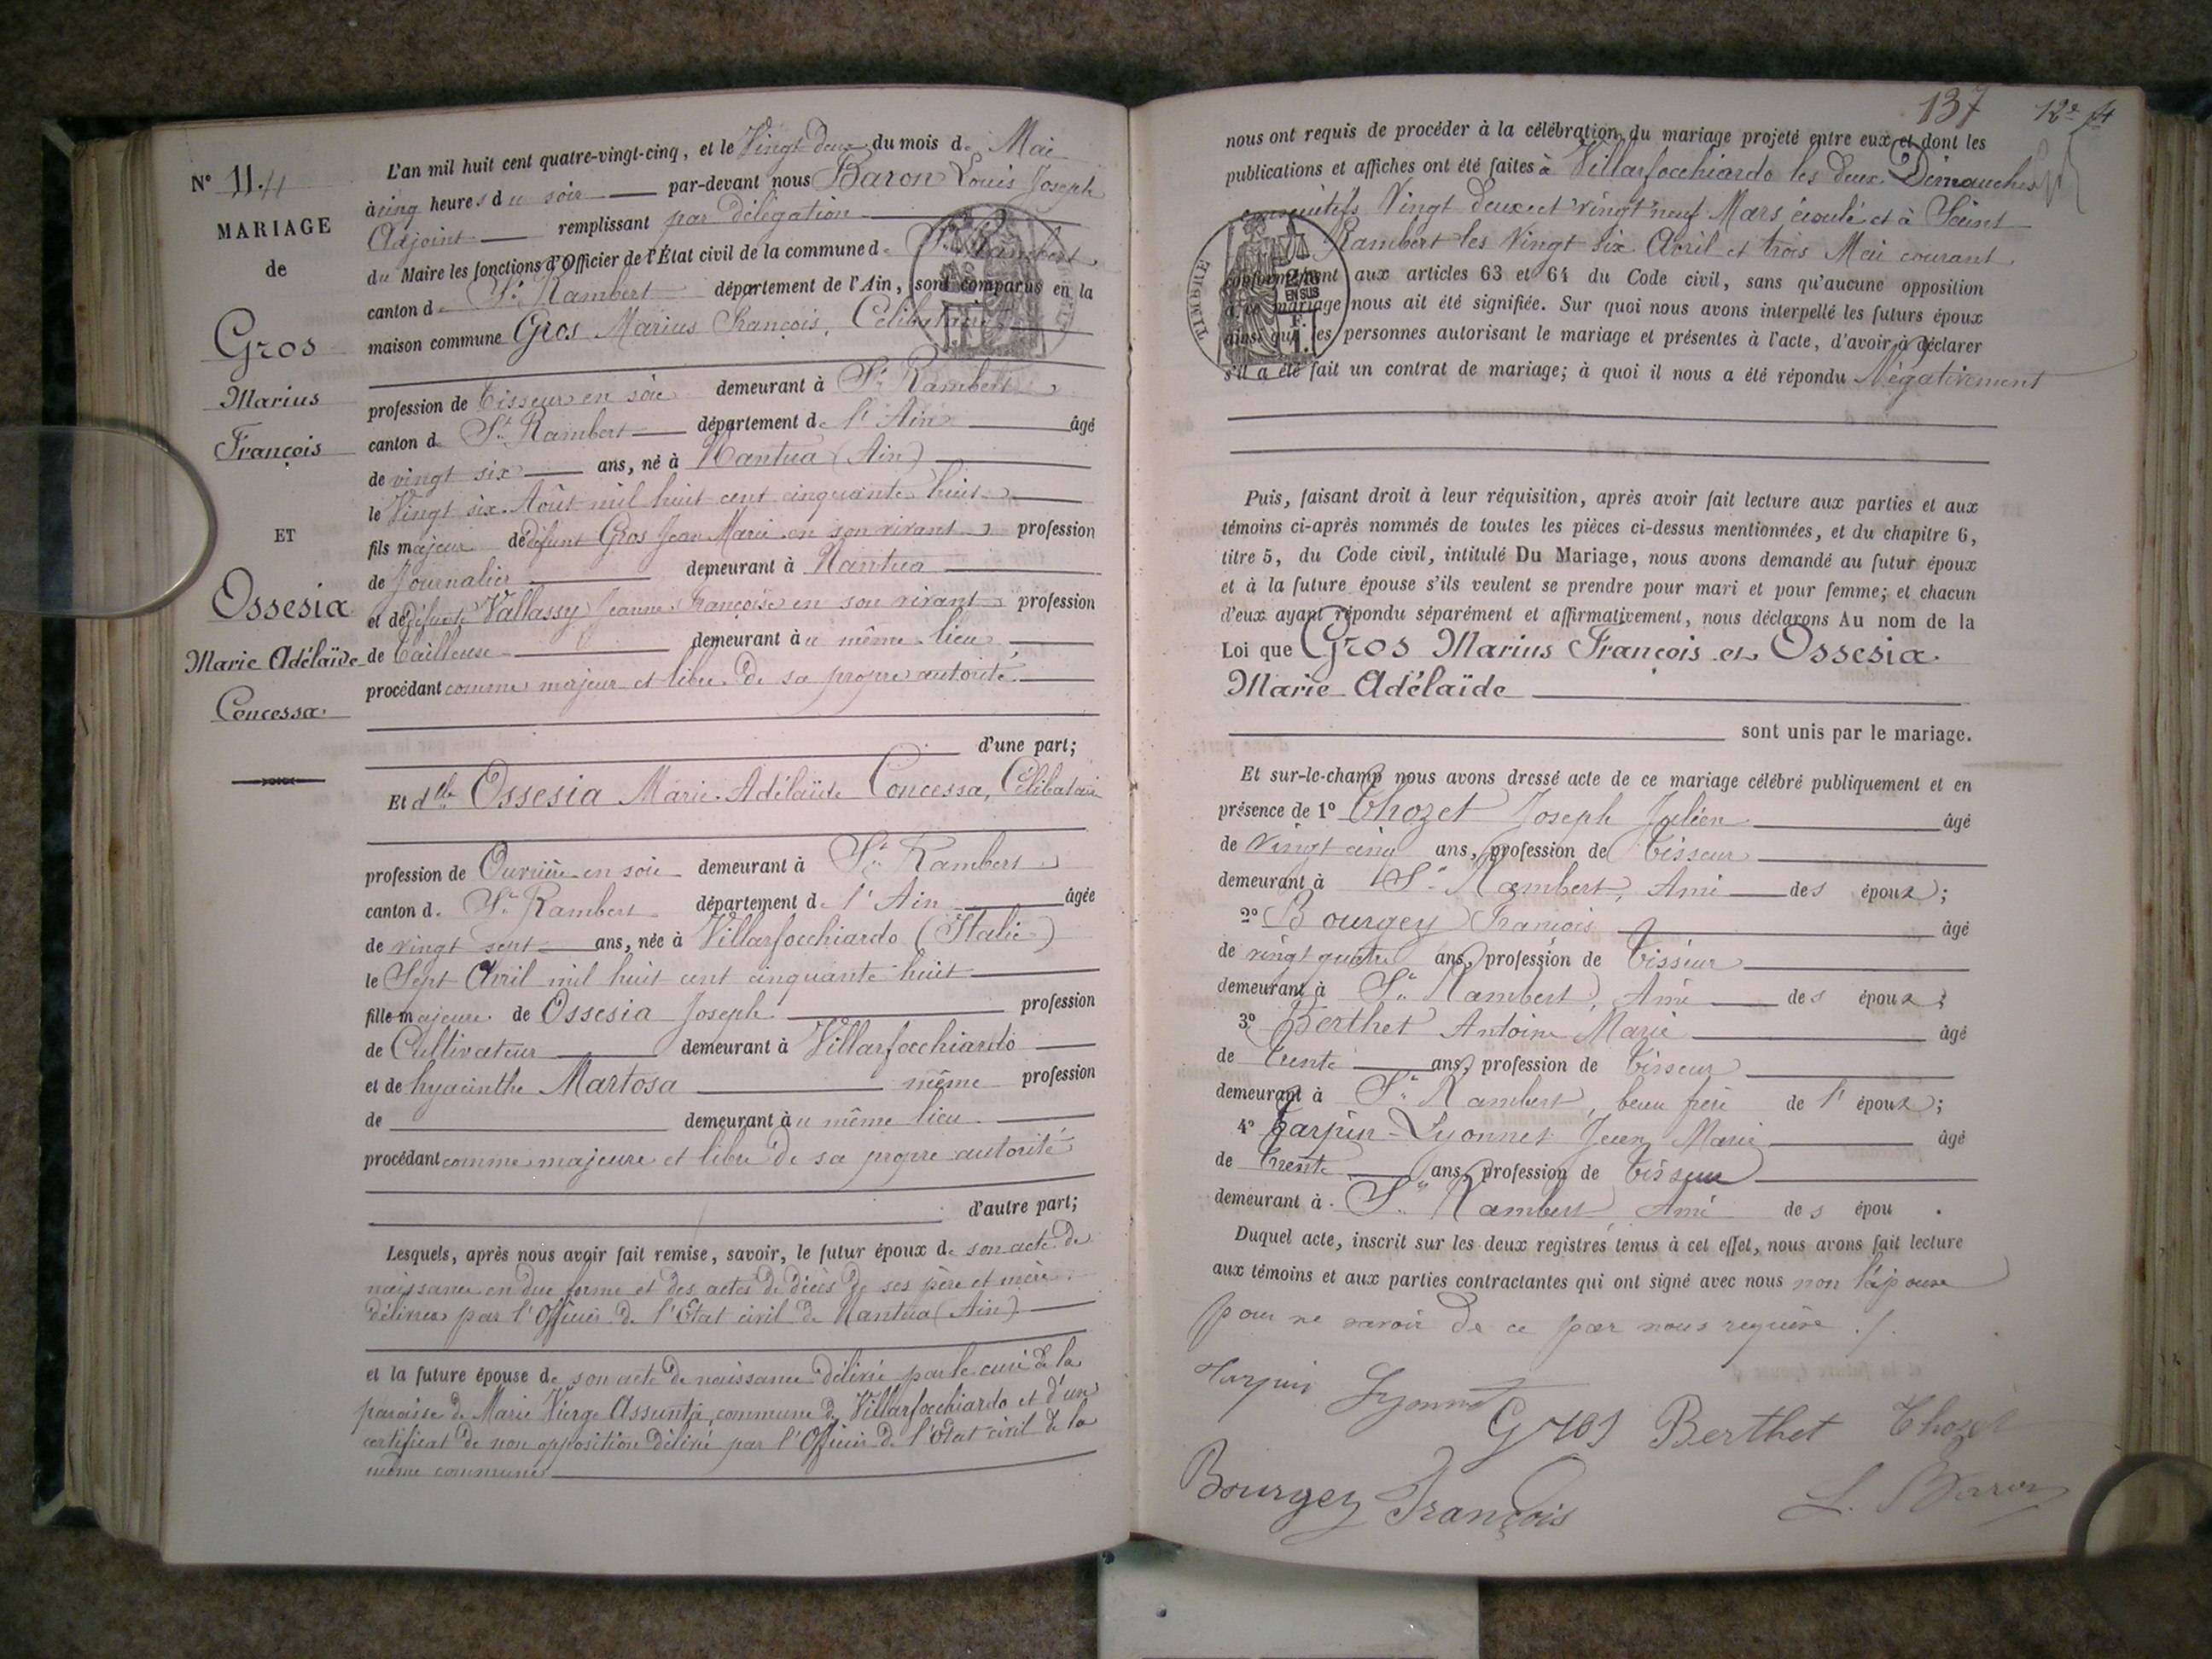 N° 11. 11
MARIAGE
de
Gros
Marius
François
ET
Ossesia
Marie Adélaïde
Concessa
L'an mil huit cent quatre-vingt-cinq, et le Vingt deux du mois de Mai
à cinq heures du soir par-devant nous Baron Louis Joseph
Adjoint remplissant par délégation
du Maire les fonctions d'Officier de l'État civil de la commune de St Rambert
canton de St Rambert département de l'Ain, sont comparus en la
maison commune Gros Marius François, Célibataire
profession de Tisseur en soie demeurant à St Rambert
canton de St Rambert département de l'Ain âgé
de vingt six ans, né à Nantua (Ain)
le Vingt six Août mil huit cent cinquante huit
fils majeur de défunt Gros Jean Marie en son vivant profession
de Journalier demeurant à Nantua
et de défunte Vallassy Jeanne Françoise en son vivant profession
de Tailleuse demeurant àu même lieu
procédant comme majeur et libre de sa propre autorité
d'une part;
Et dlle Ossesia Marie Adélaïde Concessa, Célibataire
profession de Ouvrière en soie demeurant à St Rambert
canton de St Rambert département de l'Ain âgée
de vingt sept ans, née à Villarfocchiardo (Italie)
le Sept Avril mil huit cent cinquante huit
fille majeure de Ossesia Joseph profession
de Cultivateur demeurant à Villarfocchiardo
et de hyacinthe Martosa même profession
de demeurant àu même lieu
procédant comme majeure et libre de sa propre autorité
d'autre part;
Lesquels, après nous avoir fait remise, savoir, le futur époux de son acte de
naissance en due forme et des actes de décès de ses père et mère
délivrés par l'Officier de l'Etat civil de Nantua (Ain)
et la future épouse de son acte de naissance délivré par le curé de la
paroisse de Marie Vierge Assunta, commune de Villarfocchiardo et d'un
certificat de non opposition délivré par l'Officier de l'état civil de la
même commune
137 12e
nous ont requis de procéder à la célébration du mariage projeté entre eux et dont les
publications et affiches ont été faites à Villarfocchiardo les deux Dimanches
consécutifs Vingt deux et vingt neuf Mars écoulé et à Saint
Rambert les Vingt six Avril et trois Mai courant
conformément aux articles 63 et 64 du Code civil, sans qu'aucune opposition
à ce mariage nous ait été signifiée. Sur quoi nous avons interpellé les futurs époux
ainsi que les personnes autorisant le mariage et présentes à l'acte, d'avoir à déclarer
s'il a été fait un contrat de mariage; à quoi il nous a été répondu Négativement
TIMBRE
2/10
EN SUS
Puis, faisant droit à leur réquisition, après avoir fait lecture aux parties et aux
témoins ci-après nommés de toutes les pièces ci-dessus mentionnées, et du chapitre 6,
titre 5, du Code civil, intitulé Du Mariage, nous avons demandé au futur époux
et à la future épouse s'ils veulent se prendre pour mari et pour femme; et chacun
d'eux ayant répondu séparément et affirmativement, nous déclarons Au nom de la
Loi que Gros Marius François et Ossesia
Marie Adélaïde
sont unis par le mariage.
Et sur-le-champ nous avons dressé acte de ce mariage célébré publiquement et en
présence de 1° Thozet Joseph Julien âgé
de vingt cinq ans, profession de Tisseur
demeurant à St Rambert, Ami des époux;
2° Bourgey François âgé
de vingt quatre ans, profession de Tisseur
demeurant à St Rambert, Ami des époux;
3° Berthet Antoine Marie âgé
de trente ans, profession de Tisseur
demeurant à St Rambert, beau frère de l'époux;
4° Tarpin-Lyonnet Jean Marie âgé
de trente ans, profession de Tisseur
demeurant à St Rambert Ami des épou .
Duquel acte, inscrit sur les deux registres tenus à cet effet, nous avons fait lecture
aux témoins et aux parties contractantes qui ont signé avec nous non l'épouse
pour ne savoir de ce par nous requise ./.
Tarpin Lyonnet
Gros Berthet Thozet
Bourgey François
L. Baron